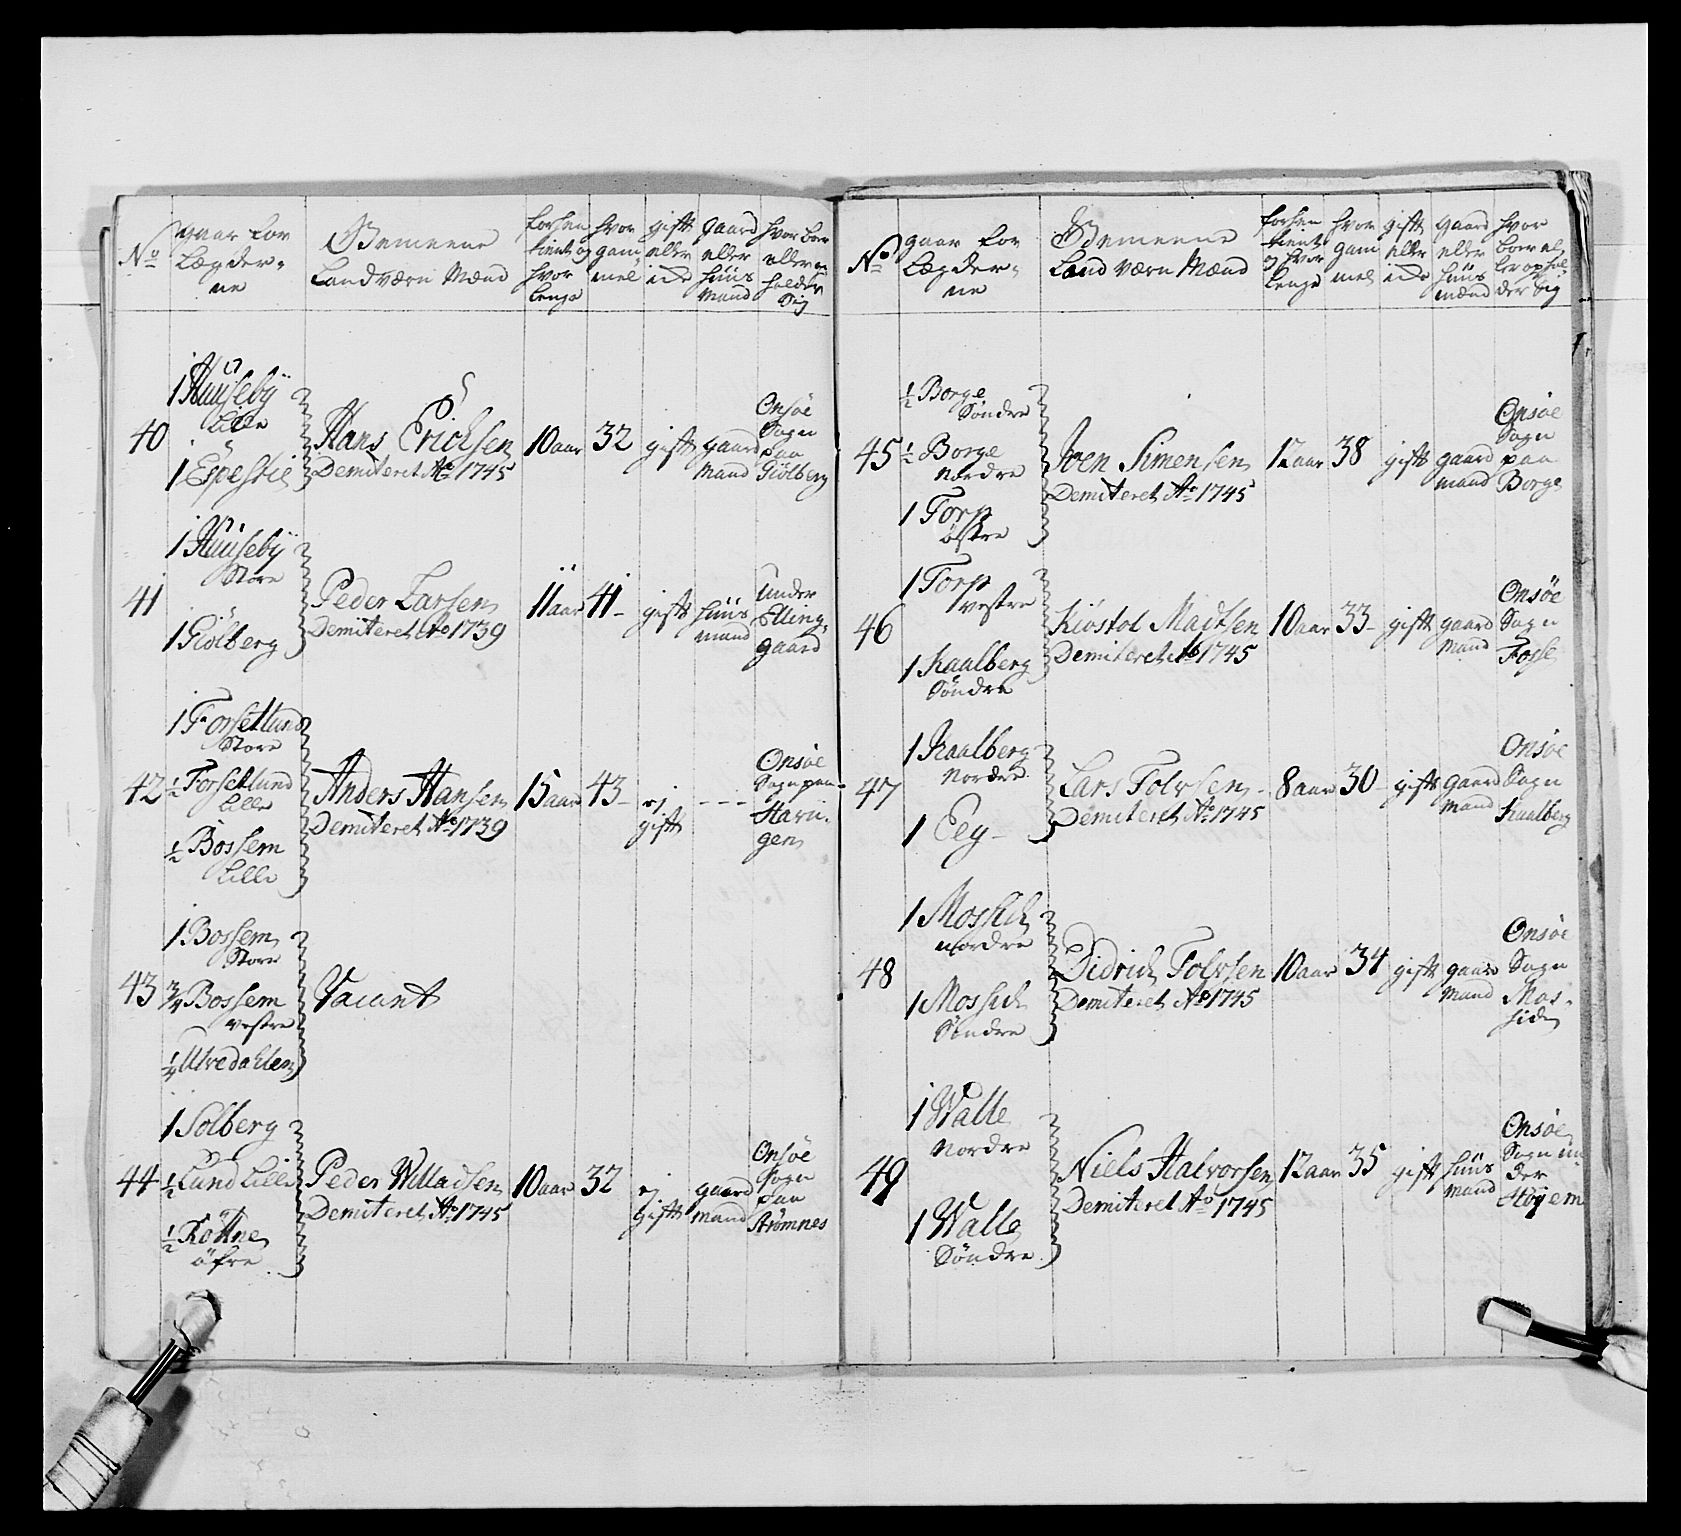 No
gaar for
Lægder-
ne
Gemeene
Landværn Mænd
forhen
tient og
hvor
lenge
hvor
gam
mel
gift
eller
icke
gaard
eller
huus
mand
hvor boer
eller op
holder
Sig
40
1 Huuseby
Lille
1 Espestie
Hans Erichsen
Demiteret Ao 1745
10 aar
32
gift
gaard
mand
Onsøe
Sogn
paa
Giölberg
41
1 Huuseby
Store
1 Giölberg
Peder Larsen
Demiteret Ao 1739
11 aar
41-
gift
huus
mand
under
Elling-
gaard
42
1 Forsetlund
Store
1/2 Forsetlund
Lille
1/2 Bossem
Lille
Anders Hansen
Demiteret Ao 1739
15 aar
43-
ej
gift
- - -
Onsøe
Sogn paa
Havn-
gen
43
1 Bossem
Store
3/4 Bossem
vestre
1/4 Ulvedahlen
Vacant
44
1 Solberg
1/2 Lund Lille
1/2 Röttne
öfre
Peder Willadsen
Demiteret Ao 1745
10 aar
32
ej
gift
gaard
mand
Onsöe
Sogn
paa
Strømnes
No
gaar for
Lægder-
ne
Gemeene
Land værn Mænd
forhen
tient
og hvor
lenge
hvor
gam
mel
gift
eller
icke
gaard
eller
huus
mænd
hvor
boer el-
ler ophol-
der Sig
45
1/2 Borge
Söndre
1/2 Borge
nordre
1 Torp
østre
Joen Simensen
Demiteret Ao 1745
12 aar
38
gift
gaard
mand
Onsøe
Sogn
paa
Borge
46
1 Torp
vestre
1 Kaalberg
Söndre
Kiöstol Madtsen
Demiteret Ao 1745
10 aar
33-
gift
gaard
mand
Onsöe
Sogn
Fosse
47
1 Kaalberg
Nordre
1 Eey-
Lars Tolvsen-
Demiteret Ao 1745
8 aar
30-
gift
gaard
mand
Onsöe
Sogn
Kaalberg
48
1 Mossich
nordre
1 Mossich
Söndre
Didrich Tolvsen
Demiteret Ao 1745
10 aar
34
gift
gaard
mand
Onsöe
Sogn
Mos-
sich
49
1 Walle
Nordre
1 Walle
Söndre
Niels Halvorsen
Demiteret Ao 1745
12 aar
35
gift
huus
mand
Onsöe
Sogn un-
der
Høyem